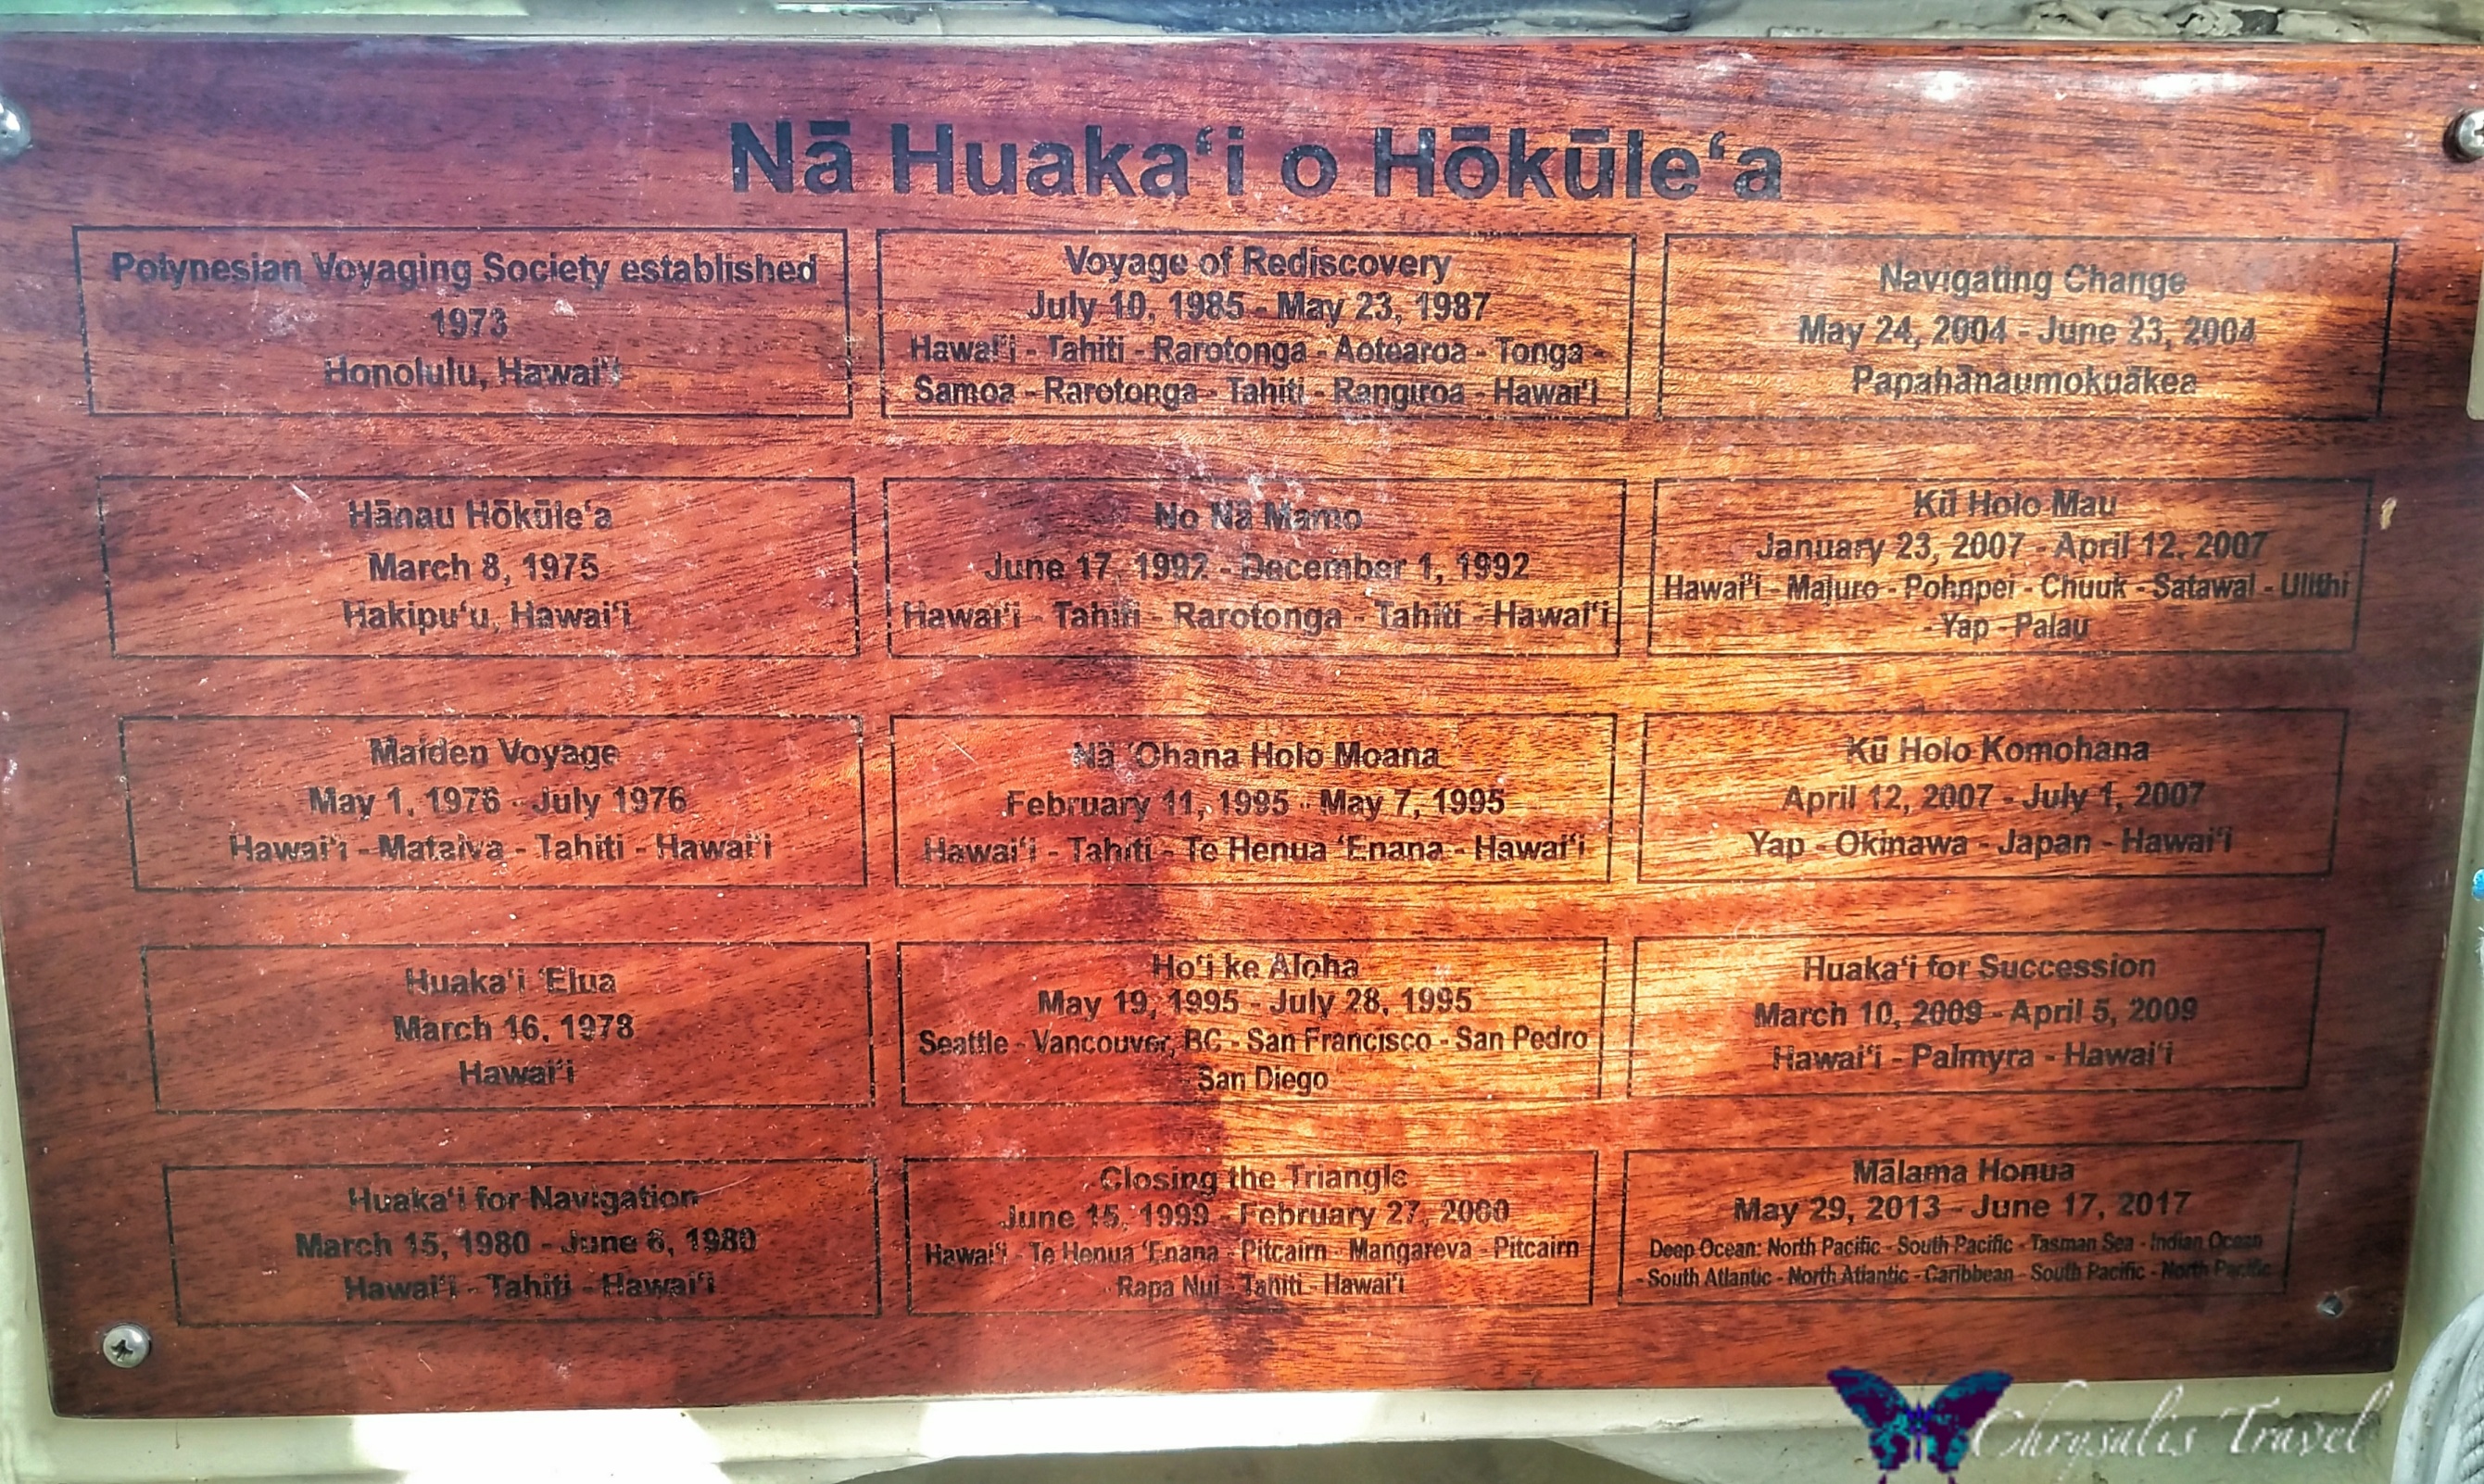 Nā Huakaʻi o Hōkūleʻa
Polynesian Voyaging Society established
1973
Honolulu, Hawaiʻi
Hānau Hōkūleʻa
March 8, 1975
Hakipuʻu, Hawaiʻi
Maiden Voyage
May 1, 1976 - July 1976
Hawaiʻi - Mataiva - Tahiti - Hawaiʻi
Huakaʻi ʻElua
March 16, 1978
Hawaiʻi
Huakaʻi for Navigation
March 15, 1980 - June 6, 1980
Hawaiʻi - Tahiti - Hawaiʻi
Voyage of Rediscovery
July 10, 1985 - May 23, 1987
Hawaiʻi - Tahiti - Rarotonga - Aotearoa - Tonga -
Samoa - Rarotonga - Tahiti - Rangiroa - Hawaiʻi
No Nā Mamo
June 17, 1992 - December 1, 1992
Hawaiʻi - Tahiti - Rarotonga - Tahiti - Hawaiʻi
Nā ʻOhana Holo Moana
February 11, 1995 - May 7, 1995
Hawaiʻi - Tahiti - Te Henua ʻEnana - Hawaiʻi
Hoʻi ke Aloha
May 19, 1995 - July 28, 1995
Seattle - Vancouver, BC - San Francisco - San Pedro
San Diego
Closing the Triangle
June 15, 1999 - February 27, 2000
Hawaiʻi - Te Henua ʻEnana - Pitcairn - Mangareva - Pitcairn
- Rapa Nui - Tahiti - Hawaiʻi
Navigating Change
May 24, 2004 - June 23, 2004
Papahānaumokuākea
Kū Holo Mau
January 23, 2007 - April 12, 2007
Hawaiʻi - Majuro - Pohnpei - Chuuk - Satawal - Ulithi
- Yap - Palau
Kū Holo Komohana
April 12, 2007 - July 1, 2007
Yap - Okinawa - Japan - Hawaiʻi
Huakaʻi for Succession
March 10, 2009 - April 5, 2009
Hawaiʻi - Palmyra - Hawaiʻi
Mālama Honua
May 29, 2013 - June 17, 2017
Deep Ocean: North Pacific - South Pacific - Tasman Sea - Indian Ocean
- South Atlantic - North Atlantic - Caribbean - South Pacific - North Pacific
Chrysalis Travel